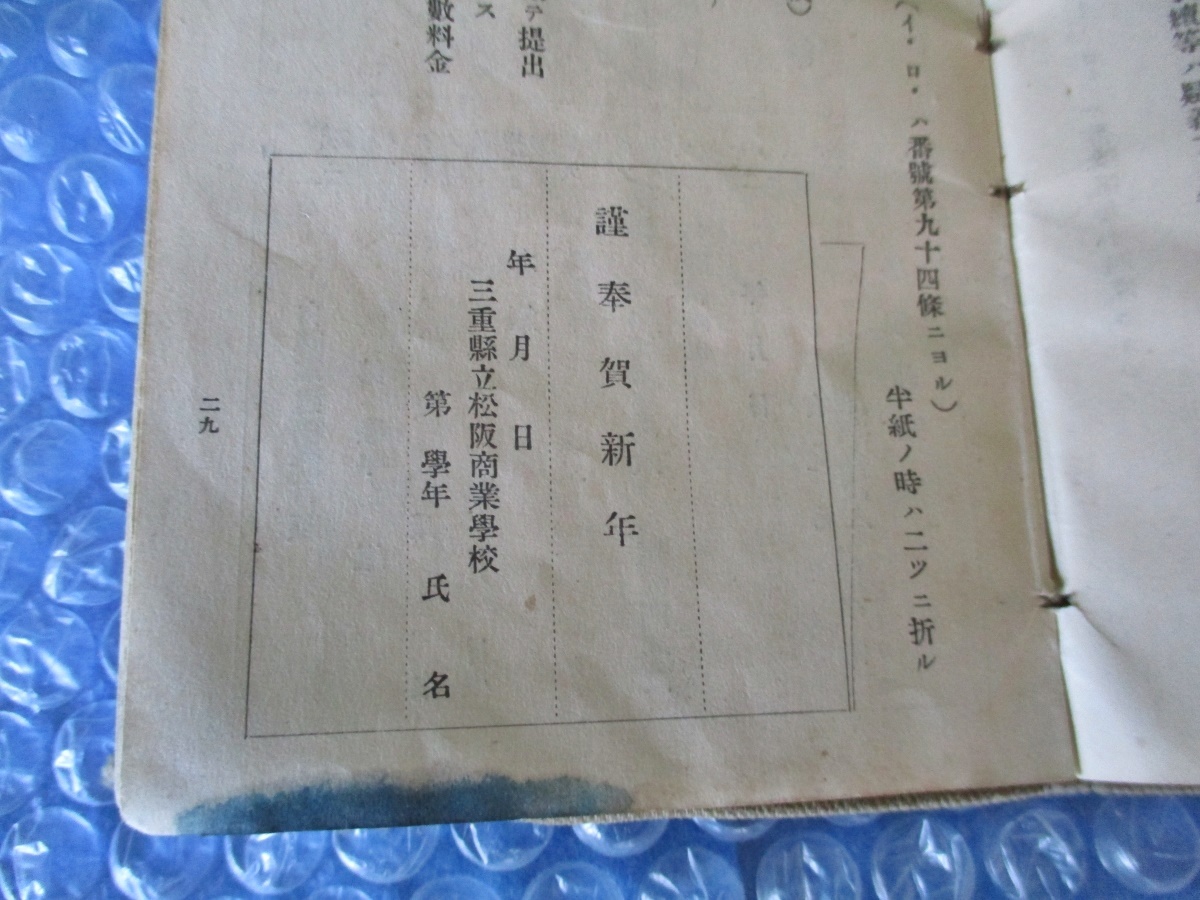 (イ、ロ、ハ番號第九十四條ニヨル)
半紙ノ時ハ二ツニ折ル
テ提出
數料金
ス
謹奉賀新年
年月日
三重縣立松阪商業學校
第 學年 氏名
二九